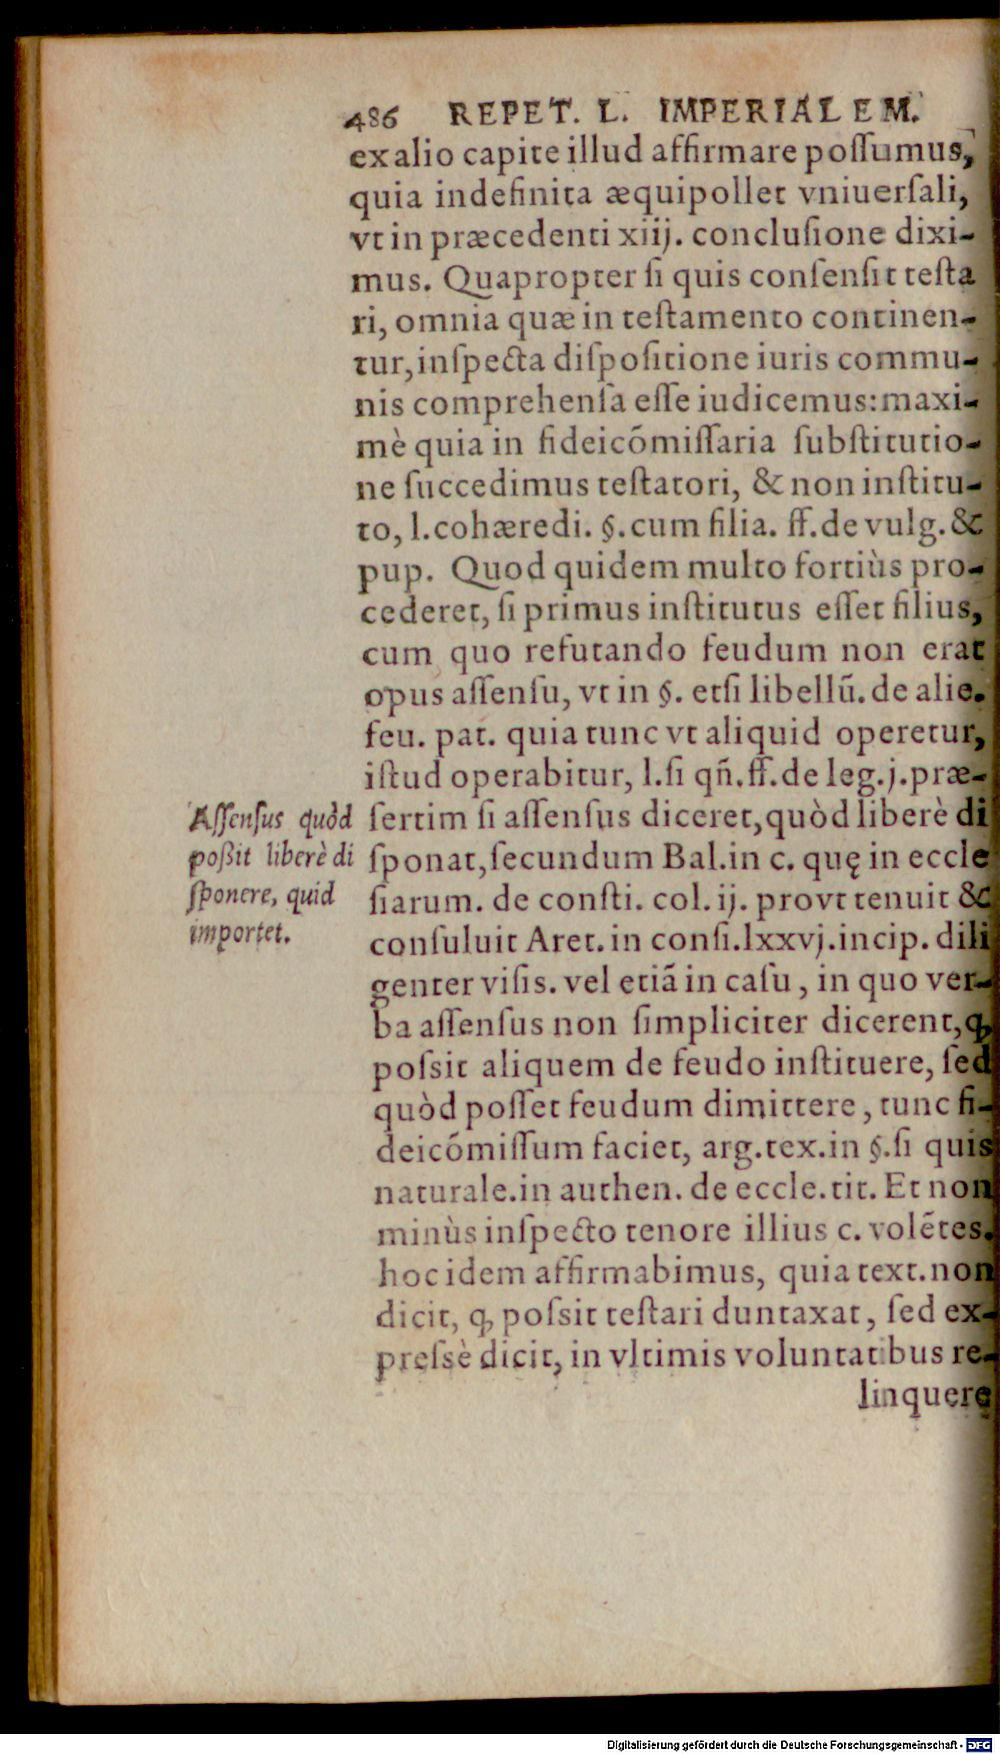 486 REPET. L. IMPERIALEM.
ex alio capite illud affirmare poſſumus,
quia indefinita æquipollet vniuerſali,
vt in præcedenti xiij. concluſione dixi-
mus. Quapropter ſi quis conſenſit teſta
ri, omnia quæ in teſtamento continen-
tur, inſpecta diſpoſitione iuris commu-
nis comprehenſa eſſe iudicemus: maxi-
mè quia in fideicõmiſſaria ſubſtitutio-
ne ſuccedimus teſtatori, & non inſtitu-
to, l. cohæredi. §. cum filia. ff. de vulg. &
pup. Quod quidem multo fortiùs pro-
cederet, ſi primus inſtitutus eſſet filius,
cum quo refutando feudum non erat
opus aſſenſu, vt in §. etſi libellũ. de alie.
feu. pat. quia tunc vt aliquid operetur,
iſtud operabitur, l. ſi qñ. ff. de leg. j. præ-
ſertim ſi aſſenſus diceret, quòd liberè di
ſponat, ſecundum Bal. in c. quę in eccle
ſiarum. de conſti. col. ij. provt tenuit &
conſuluit Aret. in conſi. lxxvj. incip. dili
genter viſis. vel etiã in caſu, in quo ver-
ba aſſenſus non ſimpliciter dicerent, ꝙ
poſsit aliquem de feudo inſtituere, ſed
quòd poſſet feudum dimittere, tunc fi-
deicõmiſſum faciet, arg. tex. in §. ſi quis
naturale. in authen. de eccle. tit. Et non
minùs inſpecto tenore illius c. volẽtes.
hoc idem affirmabimus, quia text. non
dicit, ꝙ poſsit teſtari duntaxat, ſed ex-
preſsè dicit, in vltimis voluntatibus re-
linquere
Aſſenſus quòd
poßit liberè di
ſponere, quid
importet.
Digitalisierung gefördert durch die Deutsche Forschungsgemeinschaft - DFG